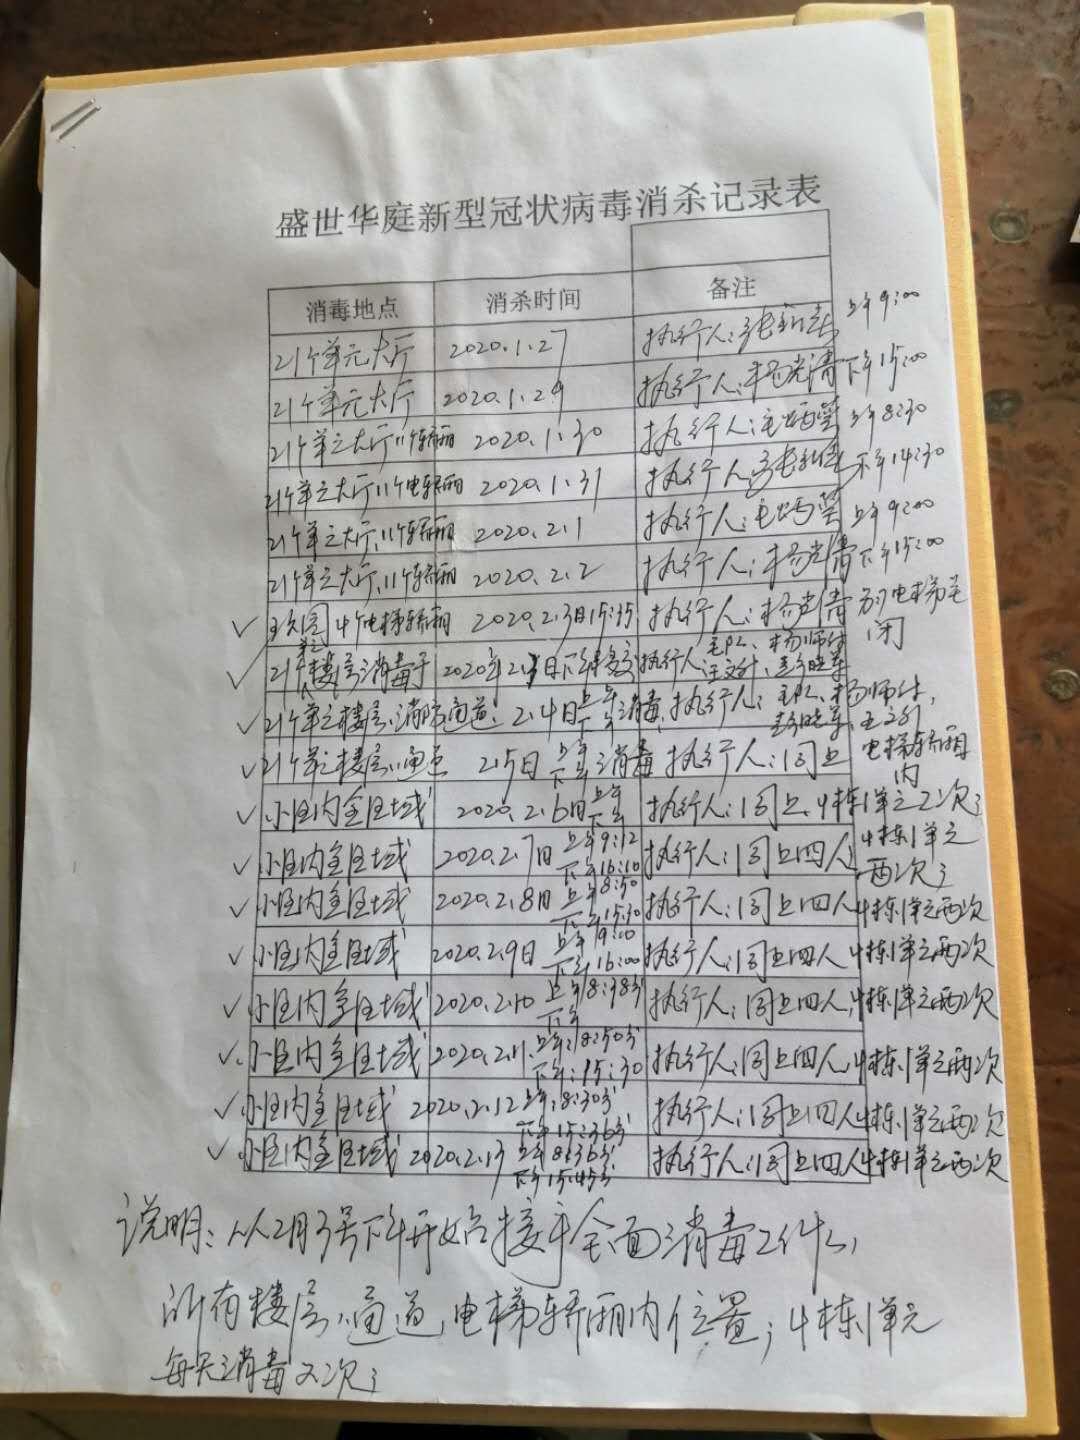 盛世华庭新型冠状病毒消杀记录表
消毒地点 消杀时间 备注
21个单元大厅 2020.1.27 执行人: 上午9:00
21个单元大厅 2020.1.29 执行人:杨光清 下午15:00
21个单元大厅11个轿厢 2020.1.30 执行人: 上午8:30
21个单元大厅11个电轿厢 2020.1.31 执行人 下午14:30
21个单元大厅、11个轿厢 2020.2.1 执行人: 上午9:00
21个单元大厅、11个轿厢 2020.2.2 执行人:杨光清 下午15:00
✓ 4个电梯轿厢 2020.2.3日15:35 执行人:杨光清 电梯关闭
✓ 21个单元楼层消毒 2020年2.3日下午 执行人 毛队、杨师傅 汪文升、彭晓军
✓ 21个单元楼层、消防通道、2.4日 上午 下午 消毒、执行人: 毛队、杨师付, 彭晓军、王文升
✓ 21个单元楼层、通道 2.5日 上午 下午 消毒 执行人:同上 电梯轿厢内
✓ 小区内全区域 2020.2.6日 上午 下午 执行人:同上、4栋1单元2次;
✓ 小区内全区域 2020.2.7日 上午9:12 下午16:10 执行人:同上四人 4栋1单元两次;
✓ 小区内全区域 2020.2.8日 上午8:50 下午15:30 执行人:同上四人 4栋1单元两次
✓ 小区内全区域 2020.2.9日 上午9:00 下午16:00 执行人:同上四人 4栋1单元两次
✓ 小区内全区域 2020.2.10 上午8:38分 下午 执行人:同上四人,4栋1单元两次
✓ 小区内全区域 2020.2.11 上午:8:50分 下午:15:30 执行人:同上四人,4栋1单元两次
✓ 小区内全区域 2020.2.12 上午:8:30分 下午15:36分 执行人:同上四人 4栋1单元两次
✓ 小区内全区域 2020.2.13 上午8:36分 下午15:45分 执行人:同上四人 4栋1单元两次
说明:从2月3号下午开始接手全面消毒工作,
所有楼层、通道、电梯轿厢内位置;4栋1单元
每天消毒2次;